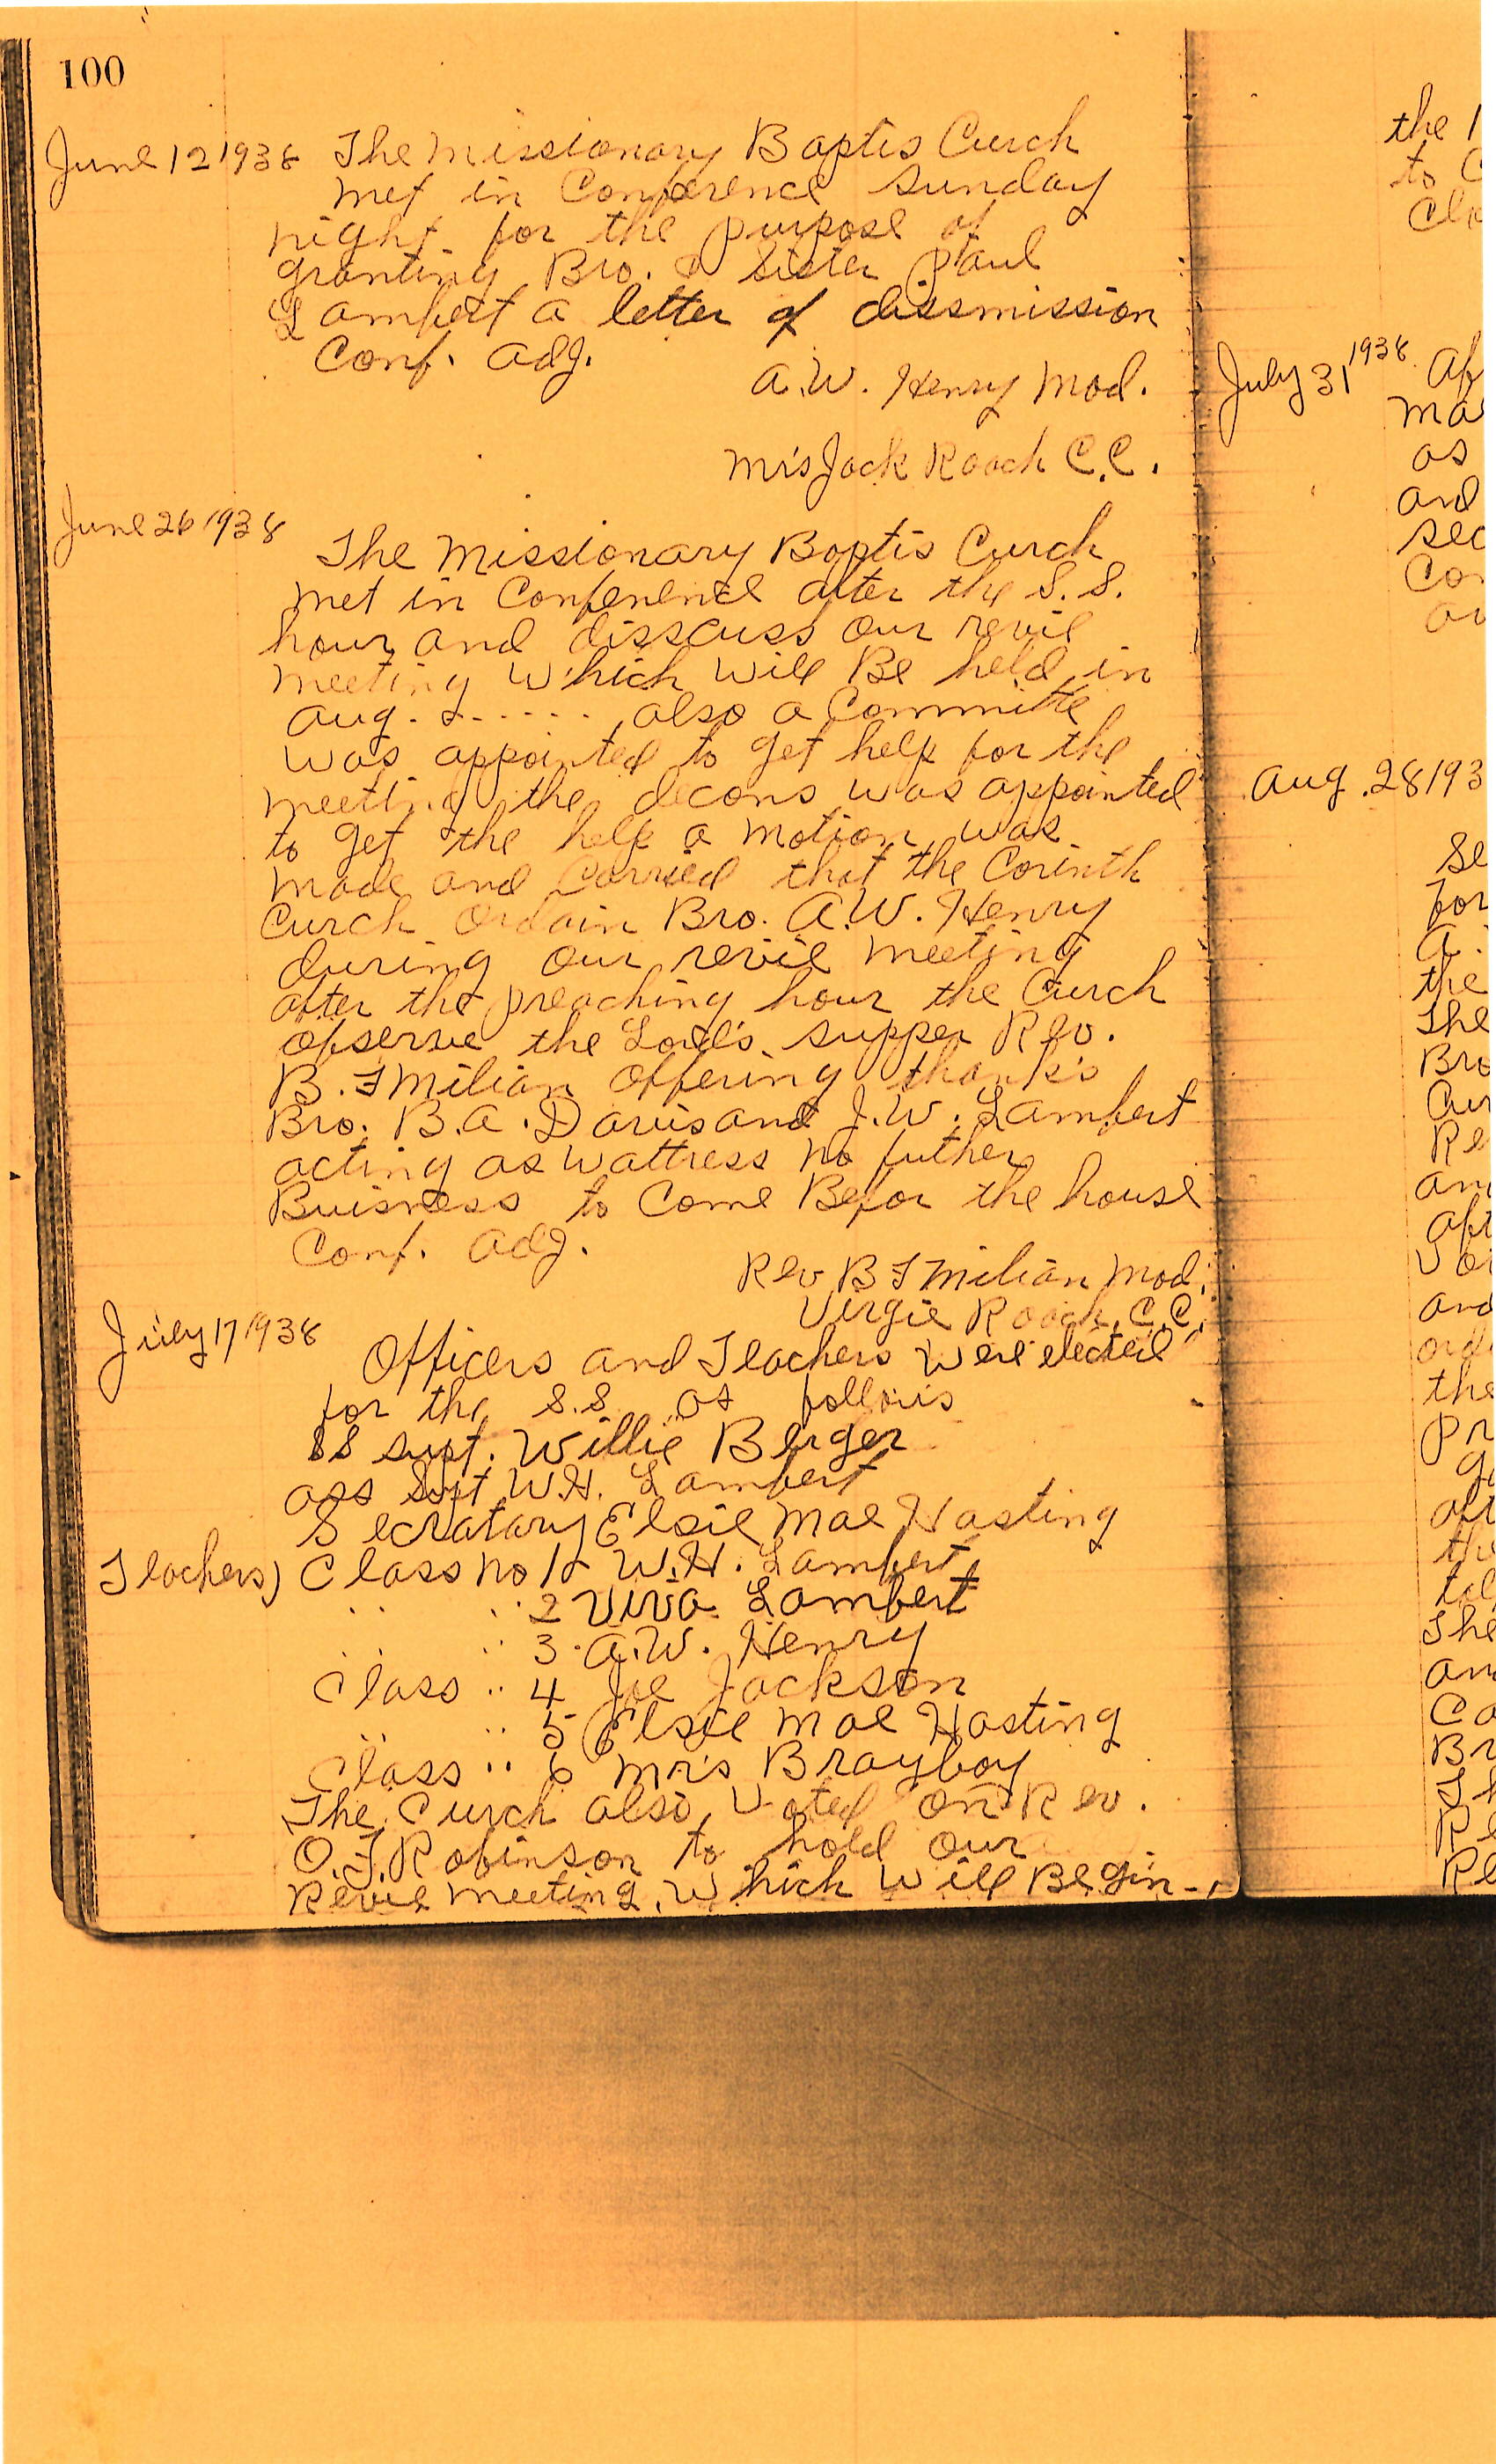 100
June 12 1938 The Missionary Baptis Curch
met in Conference Sunday
night for the purpose of
granting Bro. & Sister Paul
Lambert a letter of dissmission
Conf. adj.
A.W. Henry Mod.
Mr's Jack Roach C.C.
June 26 1938
The Missionary Baptis Curch
met in Conference after the S.S.
hour and disscuss our revil
meeting which will Be held in
Aug. - - - - - - also a Committe
was appointed to get help for the
meeting the decons was appointed
to get the help a motion was
made and Carried that the Corinth
Curch Ordain Bro. A.W. Henry
during our revil meeting
after the preaching hour the Curch
observe the Lord's supper Rev.
B.F Milian Offering thank's
Bro. B.A. Davis and J.W. Lambert
acting as wattress no futher
Buisness to Come Befor the house
Conf. adj.
Rev B F Milian Mod.
Virgie Roach, C.C.
July 17 1938
Officers and Teachers were elected
for the S.S. as follows
SS supt. Willie Berger
ass Supt W.H. Lambert
Secratary Elsie Mae Hasting
Teachers) Class no 1 W.H. Lambert
" " 2 Viva Lambert
" " 3 A.W. Henry
Class " 4 Joe Jackson
" " 5 Elsie Mae Hasting
Class " 6 Mr's Brayboy
The Curch also Voted on Rev.
O.F. Robinson to hold our
Revil meeting, which will Begin -
the
to
July 31 1938
as
and
Aug. 28 193
the
The
Bro
and
the
The